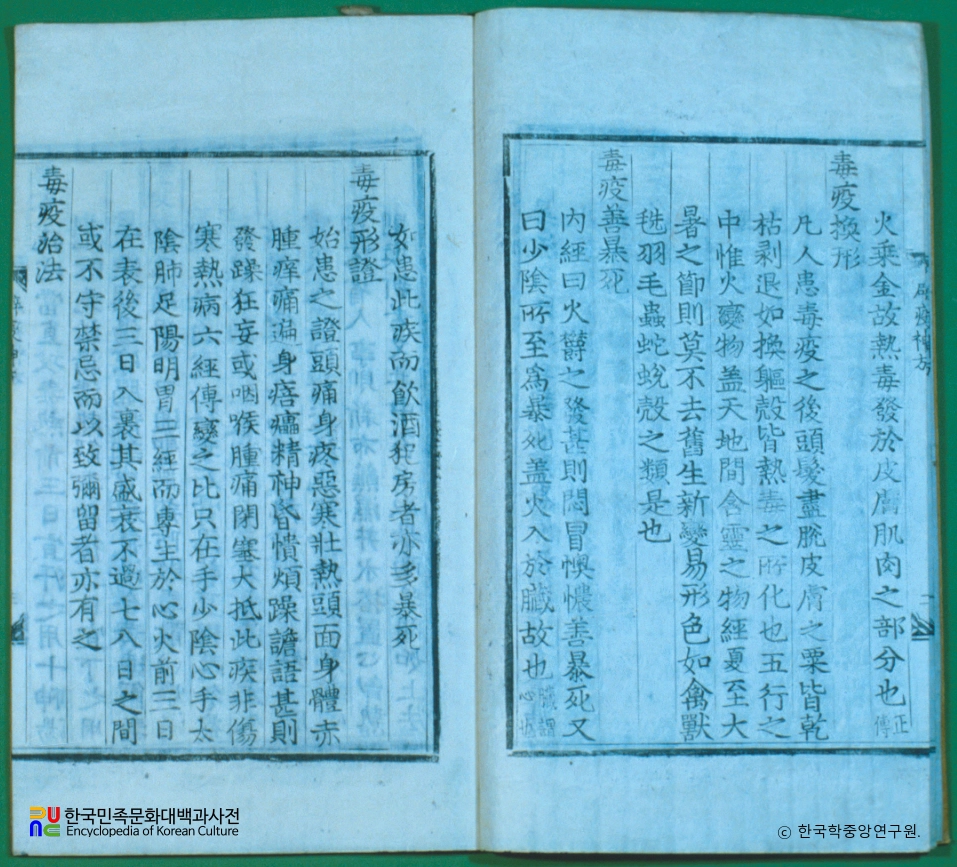 火乘金故熱毒發於皮膚肌肉之部分也正傳
毒疫換形
凡人患毒疫之後頭髮盡脫皮膚之栗皆乾
枯剥退如換軀殼皆熱毒之所化也五行之
中惟火變物盖天地間含靈之物經夏至大
暑之節則莫不去舊生新變易形色如禽獸
毨羽毛蟲蛇蛻殼之類是也
毒疫善暴死
內經曰火欝之發甚則悶冒懊憹善暴死又
曰少陰所至爲暴死盖火入於臟故也
如患此疾而飮酒犯房者亦多暴死
毒疫形證
始患之證頭痛身疼惡寒壯熱頭面身體赤
腫痒痛遍身㾦㿔精神昏憒煩躁譫語甚則
發躁狂妄或咽喉腫痛閉塞大抵此疾非傷
寒熱病六經傳變之比只在手少陰心手太
陰肺足陽明胃三經而專主於心火前三日
在表後三日入裏其盛衰不過七八日之間
或不守禁忌而以致彌留者亦有之
毒疫治法
한국민족문화대백과사전
Encyclopedia of Korean Culture
© 한국학중앙연구원.